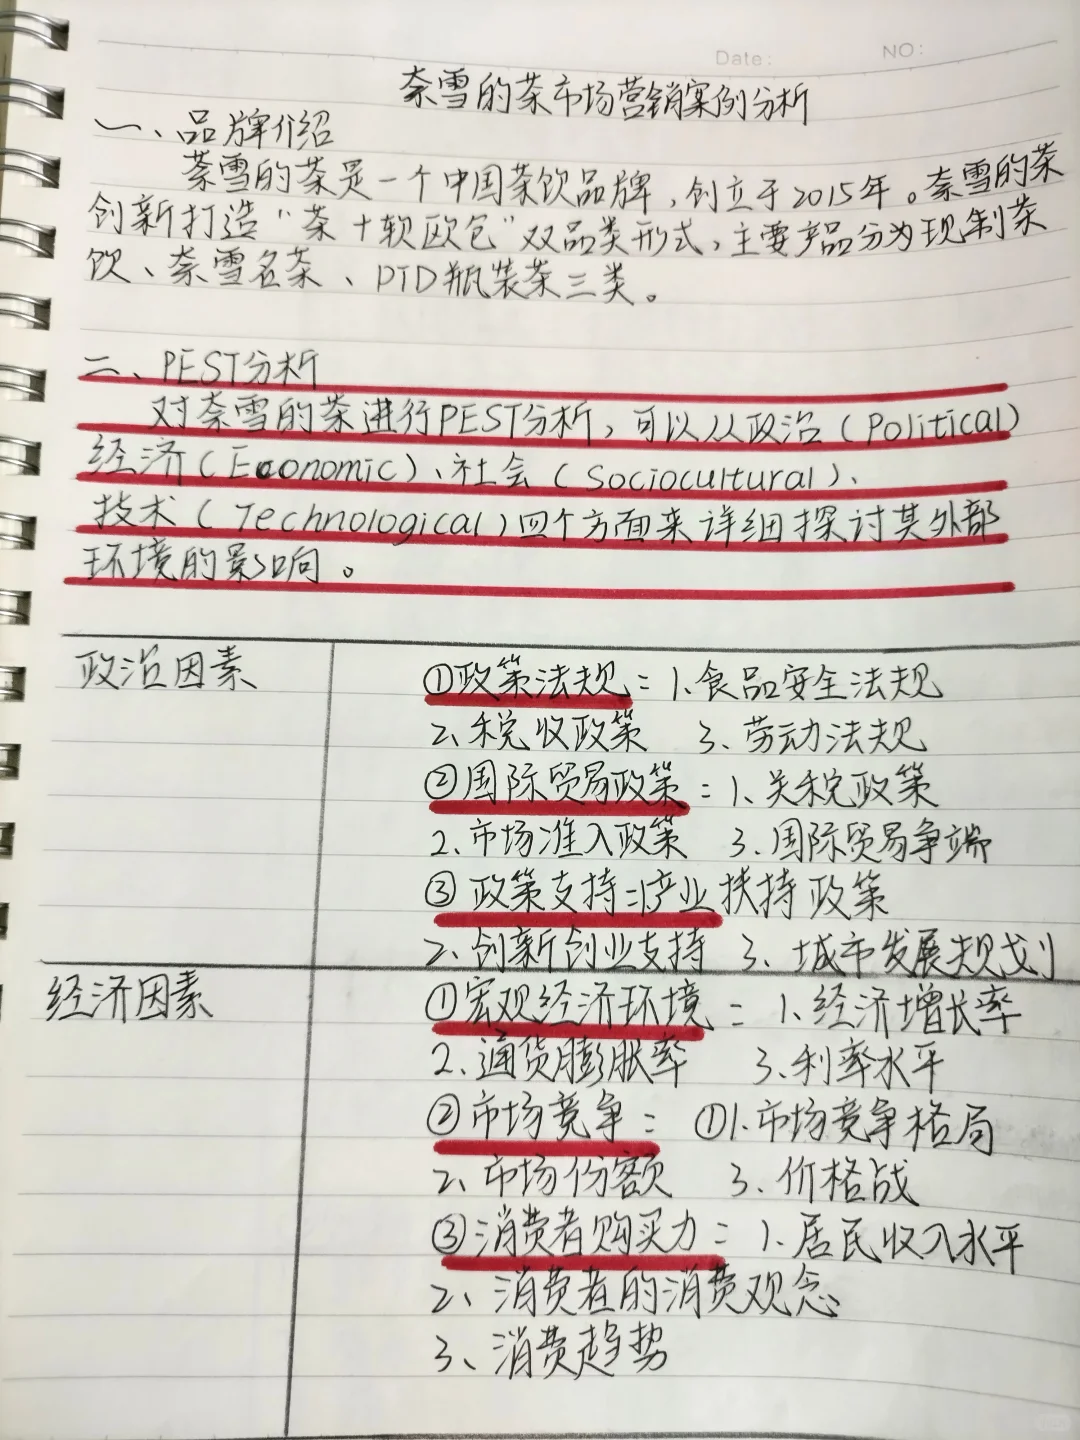 Date:
NO:
奈雪的茶市场营销案例分析
一、品牌介绍
奈雪的茶是一个中国茶饮品牌,创立于2015年。奈雪的茶
创新打造"茶+软欧包"双品类形式,主要产品分为现制茶
饮、奈雪名茶、PTD瓶装茶三类。
二、PEST分析
对奈雪的茶进行PEST分析,可以从政治(Political)
经济(Economic)、社会(Sociocultural)、
技术(Technological)四个方面来详细探讨其外部
环境的影响。
政治因素
①政策法规:1.食品安全法规
2、税收政策 3、劳动法规
②国际贸易政策:1、关税政策
2.市场准入政策 3.国际贸易争端
③政策支持:1产业扶持政策
2、创新创业支持 3、城市发展规划
经济因素
①宏观经济环境:1、经济增长率
2.通货膨胀率 3、利率水平
②市场竞争:①1.市场竞争格局
2、市场份额 3.价格战
③消费者购买力:1.居民收入水平
2、消费者的消费观念
3、消费趋势